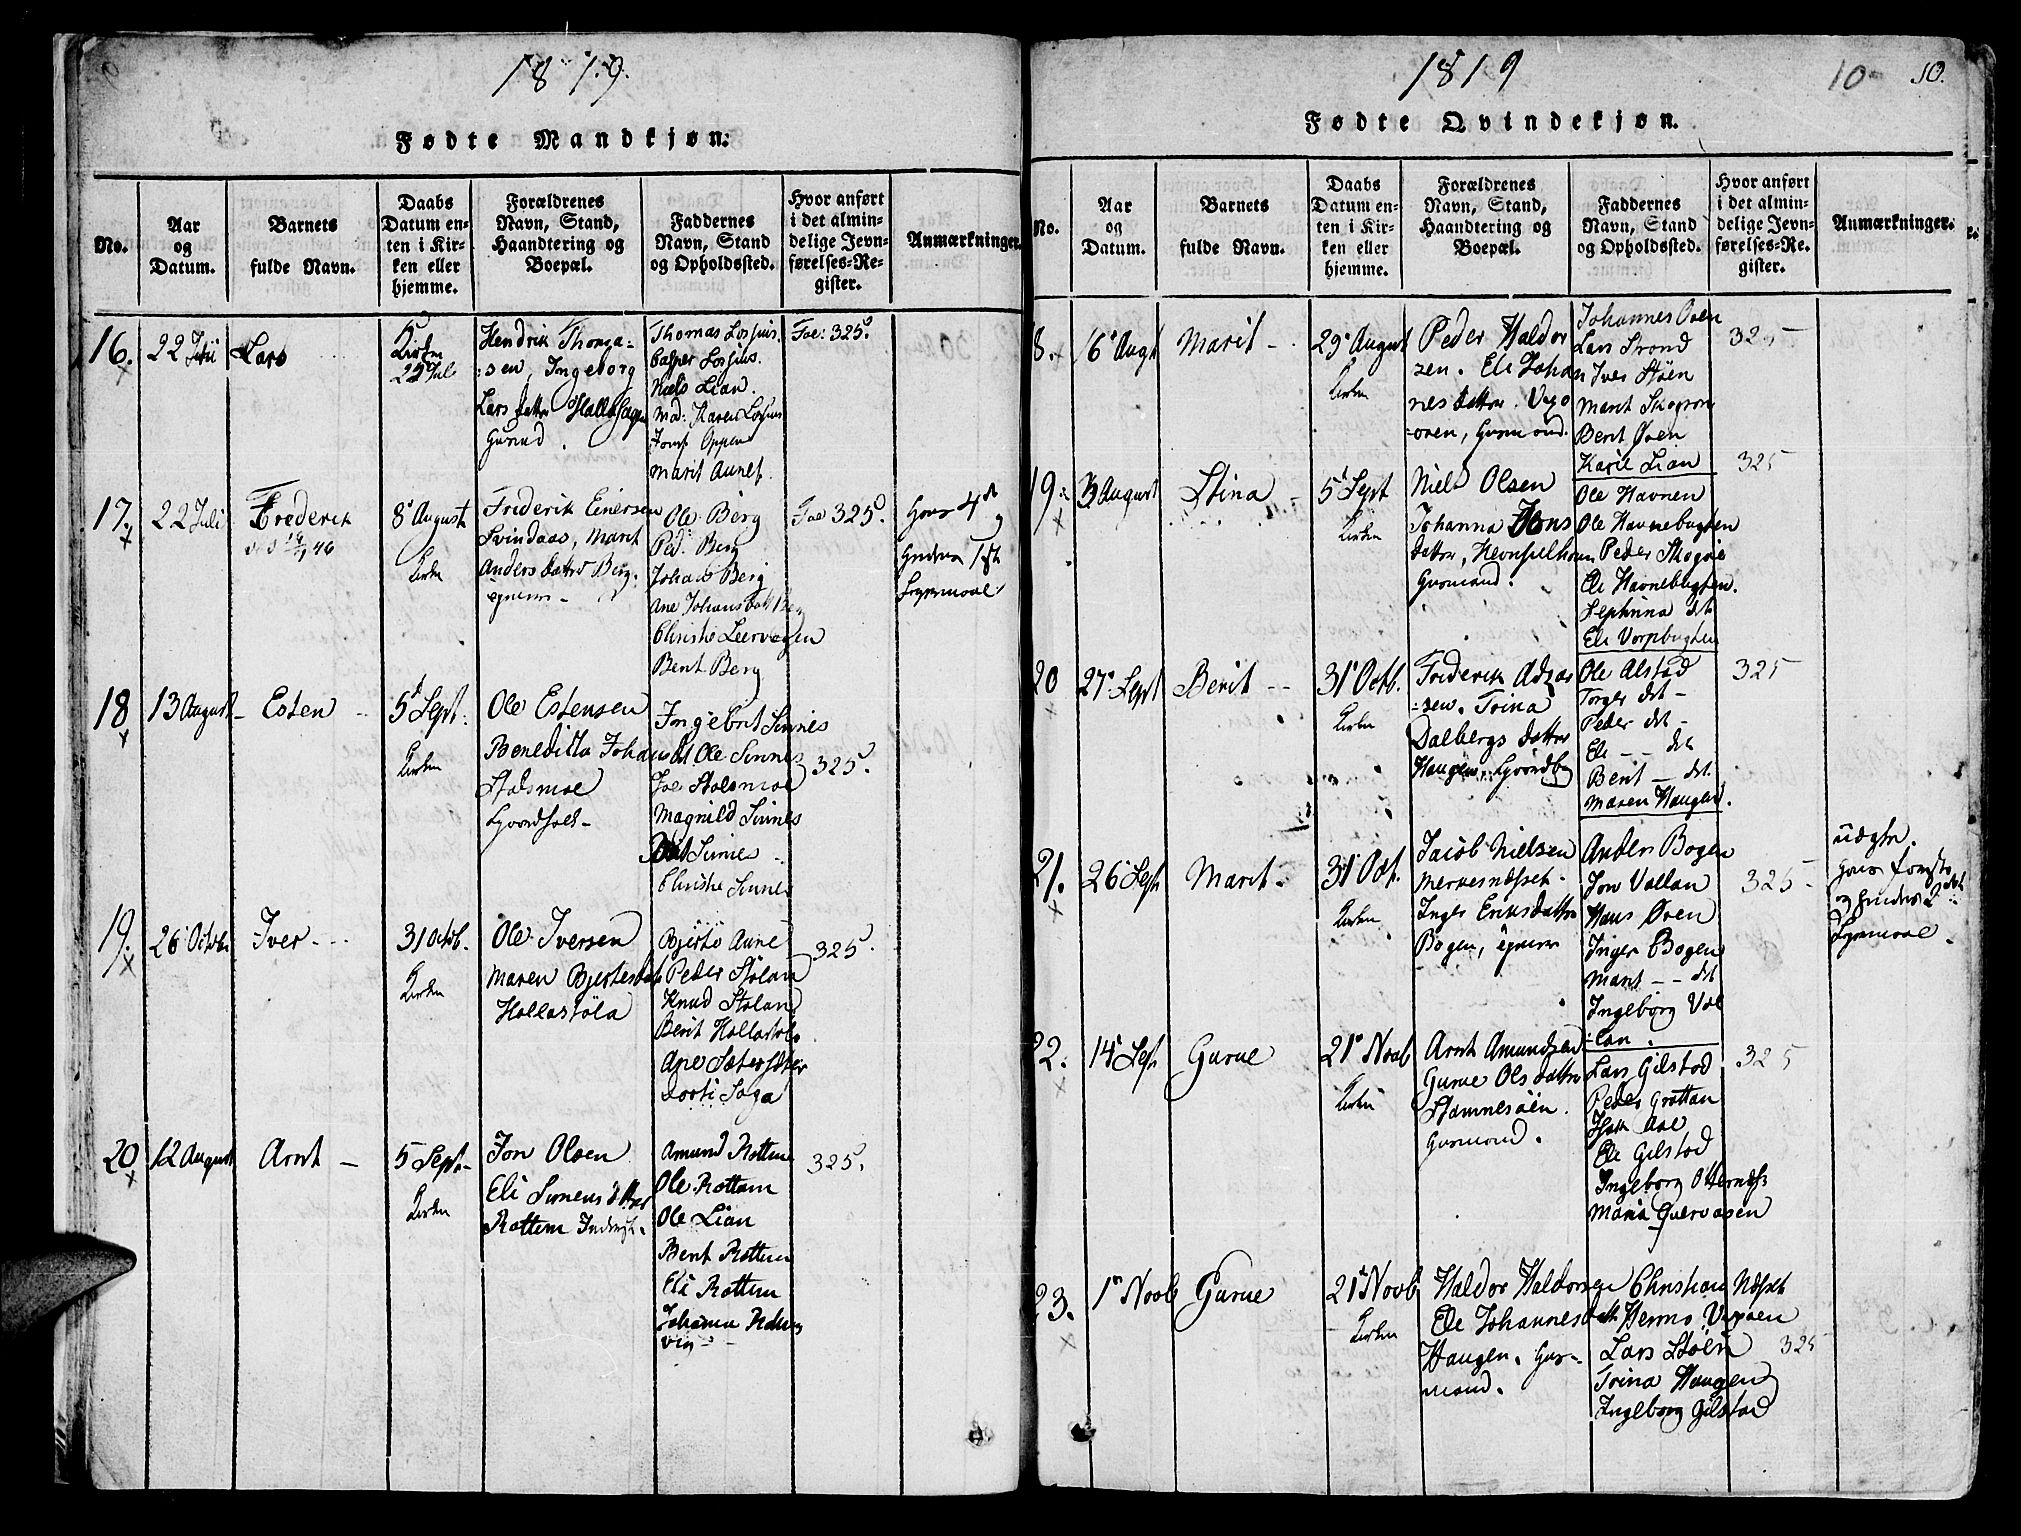 1819.
Fødte Mandkjøn.
No.
Aar
og
Datum.
Barnets
fulde Navn.
Daabs
Datum en-
ten i Kir-
ken eller
hjemme.
Forældrenes
Navn, Stand,
Haandtering og
Boepæl.
Faddernes
Navn, Stand
og Opholdssted.
Hvor anført
i det almin-
delige Jevn-
førelses-Re-
gister.
Anmærkninger.
16.
22 Juli
Lars
Kirken
25 Jul
Hendrik
sen, Ingeborg
Lars datter
Thomas
Casper
Niels Lian.
Md: Karen
Jomf Oppen
Marit Aunet.
Foe: 325.
17.
22 Juli
Frederik
8 August
Kirken
Frederik Einersen
Svindaas, Marit
Anders datter Berg.
Ole Berg
Ped. Berg
Johans Berg
Ane Johans datt Berg
Christi Leervogen
Berit Berg
Foe 325.
Hans 4de
Hendes 1ste
Leyermaal
18
13 August
Esten
5 Sept.
Kirken
Ole Estensen
Beneditta Johans dt
Stolsmoe
Ingebort Sinnes
Ole Sinnes
Joe Stolsmoe
Magnild Sinnes
Sinnes
Christie Sinnes
325.
19.
26 Octobr
Iver
31 Octob.
Kirken
Ole Iversen
Maren Bjertesdat
Hollastøla
Bjertø Aune
Peder Stølan
Knud Stølan
Berit Hollastøl
Ane Sætersæter
Dorti Saga
325.
20
12 August
Arnt
5 Sept.
Kirken
Jon Olsen
Eli Simens datter
Rottem
Amund Rottem
Ole Rottem
Ole Lian
Berit Rottem
Eli Rottem
Johanna
vig
325.
1819
10
10.
Fødte Qvindekjøn.
No.
Aar
og
Datum.
Barnets
fulde Navn.
Daabs
Datum en-
ten i Kir-
ken eller
hjemme.
Forældrenes
Navn, Stand,
Haandtering og
Boepæl.
Faddernes
Navn, Stand
og Opholdssted.
Hvor anført
i det almin-
delige Jevn-
førelses-Re-
gister.
Anmærkninger.
18.
16 Augt
Marit
29 August
Kirken
Peder Haldor
sen. Eli Johan
nes datter.
oren, Gusmand.
Johannes Øren
Lars Strand
Iver Støen
Marit
Berit Øren
Karie Lian
325
19.
August
Stina
5 Sept
Kirken
Niels Olsen
Johanna Jons
datter,
Gusmand.
Ole Havnen
Ole Havnebugten
Peder Skogøie
Eli Havnebugten.
Sephrina dt
Eli Vorpbugten
325
20
27 Sept
Berit
31 Octb.
Kirken
Frederik
sen. Trina
Dalbergs datter
Haugen
Ole Alstad
Torger det
Peder det
Eli det
Berit det
Maren Haugen.
325
21.
26 Sept
Marit
31 Oct.
Kirken
Jacob Nielsen
Mervesnæset
Inger Eriksdatter
Bogen,
Anders Bogen
Jon Vollan
Hans Øren
Inger Bogen
Marit det
Ingeborg Vol
lan.
325
udgtn.
Hans første
og hendes 2det
Leyermaal.
22.
14 Sept
Gurue
21 Novb
Kirken
Arnt Amundsen
Gurue Olsdatter
Stamnesøen.
Gusmand.
Lars Gilstad
Peder Grøttan
Aae
Eli Gilstad
Ingeborg Otternæs
Maria Qvervaagen
325
23.
1 Novb
Gurue
21 Novb
Kirken
Haldor Haldorsen
Eli Johannesdatt
Haugen. Gus-
mand.
Christian Næset
Hemo
Lars Støen
Trina Haugen
Ingeborg Gilstad
325